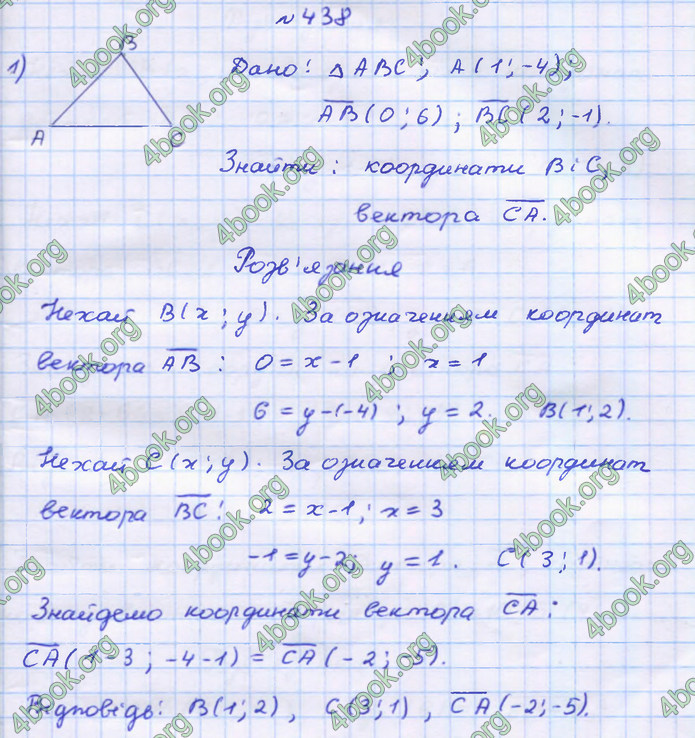 №438
1)
B
A
C
Дано: △ABC; A(1;-4);
AB(0;6); BC(2;-1).
Знайти: координати B і C,
вектора CA.
Розв'язання
Нехай B(x;y). За означенням координат
вектора AB: 0=x-1; x=1
6=y-(-4); y=2. B(1;2).
Нехай C(x;y). За означенням координат
вектора BC: 2=x-1; x=3
-1=y-2; y=1. C(3;1).
Знайдемо координати вектора CA:
CA(1-3; -4-1) = CA(-2; -5).
Відповідь: B(1;2), C(3;1), CA(-2;-5).
4book.org